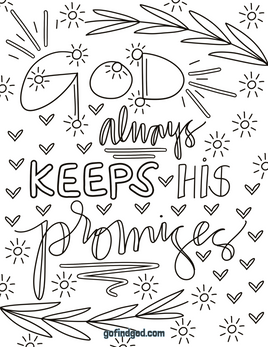 GOD
always
KEEPS HiS
promises
gofindgod.com